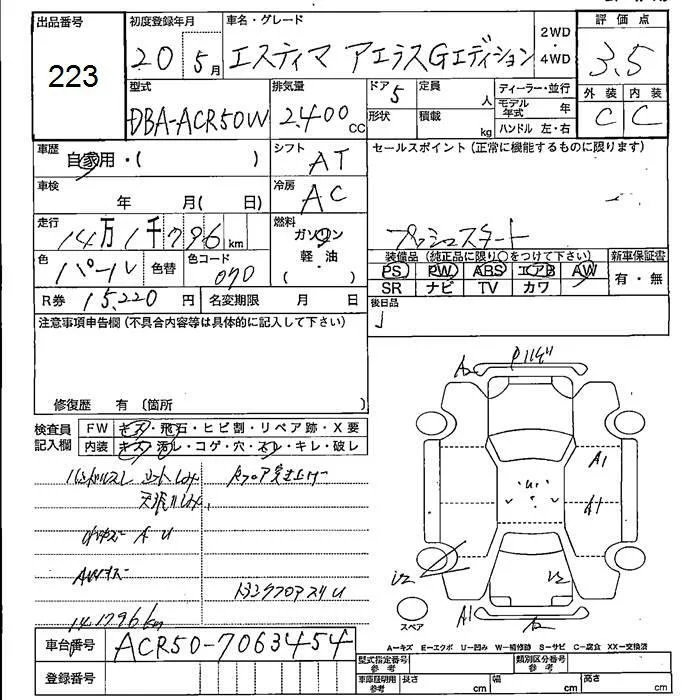 出品番号 223
初度登録年月 20 5月
車名・グレード エスティマ アエラスGエディション 2WD・4WD
評価点 3.5
外装 C 内装 C
型式 DBA-ACR50W
排気量 2,400cc
ドア 5 形状
定員 人 積載 kg
ディーラー・並行
モデル年式 年
ハンドル 左・右
車歴 自家用・( )
シフト AT
セールスポイント(正常に機能するものに限ります)
プッシュスタート
車検 年 月( 日)
冷房 AC
走行 14万1千796km
燃料 ガソリン 軽・油 ( )
色 パール 色替 色コード 070
装備品(純正品に限り○をつけて下さい) 新車保証書
PS PW ABS エアB AW 有・無
SR ナビ TV カワ
R券 15,220円 名変期限 月 日
後日品
注意事項申告欄(不具合内容等は具体的に記入して下さい)
修復歴 有 〔箇所 〕
検査員記入欄
FW キズ・飛石・ヒビ割・リペア跡・X要
内装 キズ・汚レ・コゲ・穴・スレ・キレ・破レ
ハンドルスレ シートシミ
天張リシミ
AWキズ
トランクフロアスリU
141796km
A2
A1
A1
U2
U2
A1
スペア
車台番号 ACR50-7063454
登録番号
A-キズ E-エクボ U-凹み W-補修跡 S-サビ C-腐食 XX-交換済
型式指定番号 参考 類別区分番号 参考
車庫証明用 参考 長さ cm 幅 cm 高さ cm